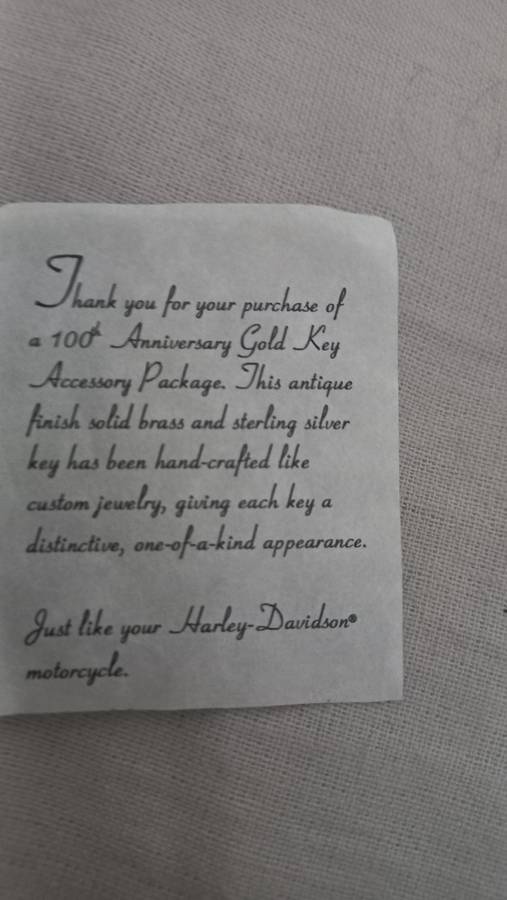 Thank you for your purchase of
a 100th Anniversary Gold Key
Accessory Package. This antique
finish solid brass and sterling silver
key has been hand-crafted like
custom jewelry, giving each key a
distinctive, one-of-a-kind appearance.
Just like your Harley-Davidson®
motorcycle.